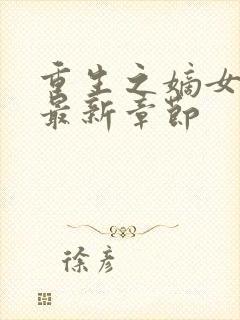 重生之嫡女
最新章节
徐彦